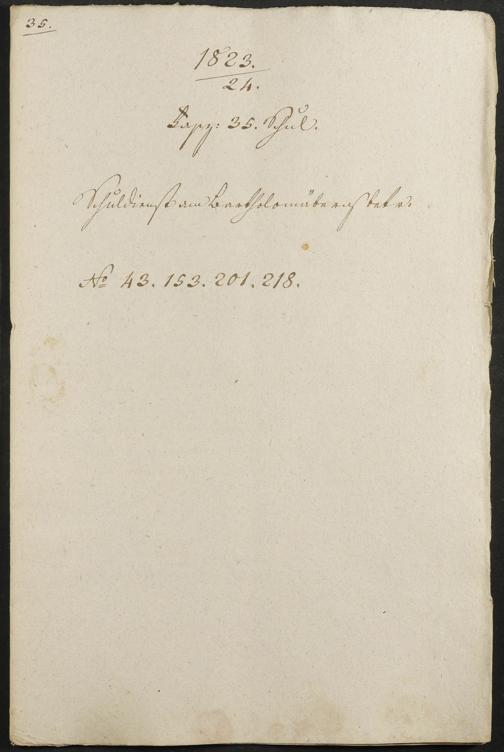 35.
1823.
24.
Fasz: 35. Schul.
Schuldienst am Bartholomäberg betr.
No 43. 153. 201. 218.